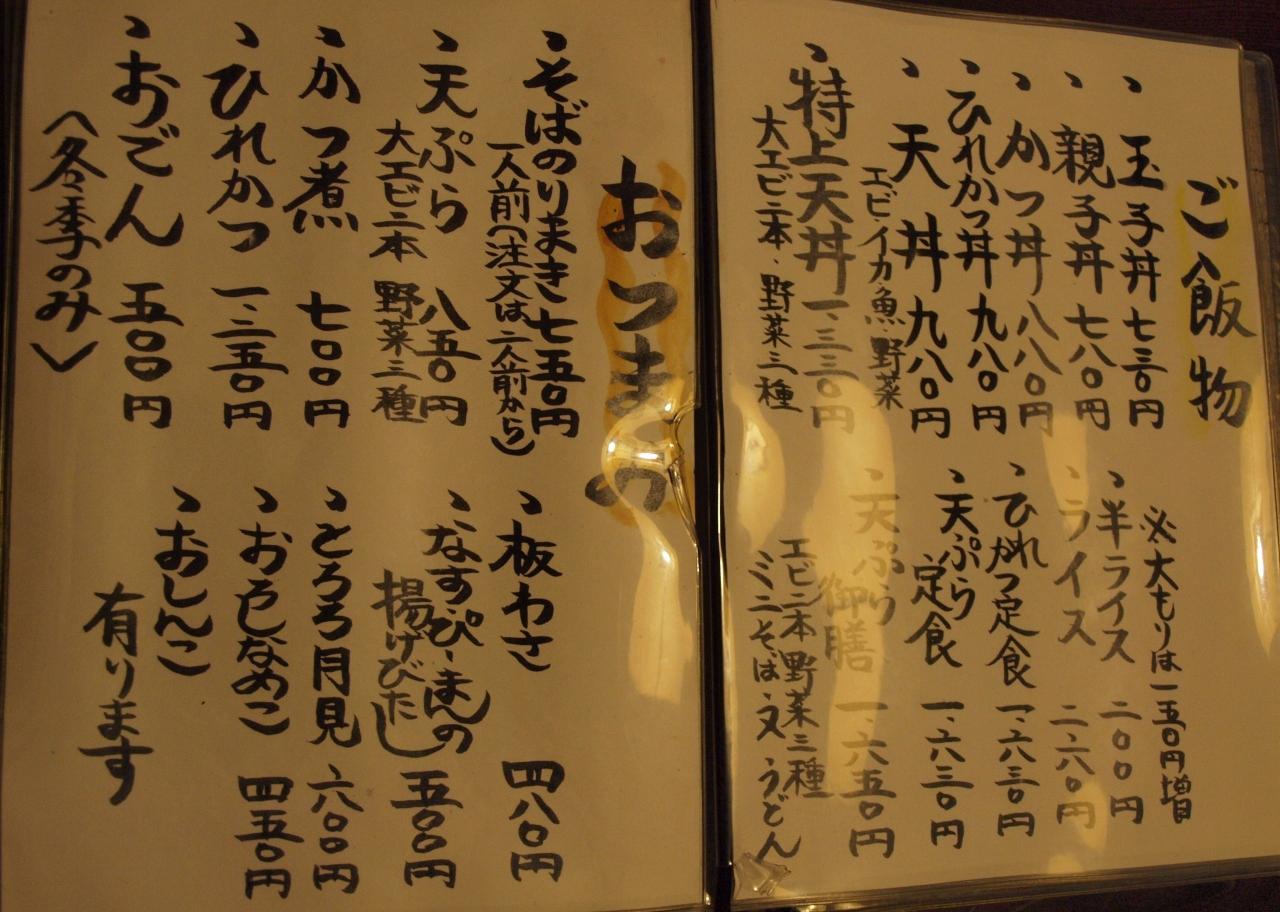 ご飯物
、玉子丼 七三〇円
、親子丼 七八〇円
、かつ丼 八八〇円
、ひれかつ丼 九八〇円
、天丼 九八〇円
エビ イカ 魚・野菜
、特上天丼 一、三三〇円
大エビ二本・野菜三種
※大もりは一五〇円増
、半ライス 二〇〇円
、ライス 二六〇円
、ひれかつ定食 一、六三〇円
、天ぷら定食 一、六三〇円
、天ぷら御膳 一、六五〇円
エビ二本野菜三種
ミニそば又うどん
おつまみ
、そばのりまき 七五〇円
一人前(注文は二人前から)
、天ぷら 八五〇円
大エビ二本 野菜三種
、かつ煮 七〇〇円
、ひれかつ 一、二五〇円
、おでん 五〇〇円
〈冬季のみ〉
、板わさ 四八〇円
、なすぴーまんの
揚げびたし 五〇〇円
、とろろ月見 六〇〇円
、おろしなめこ 四五〇円
、おしんこ
有ります